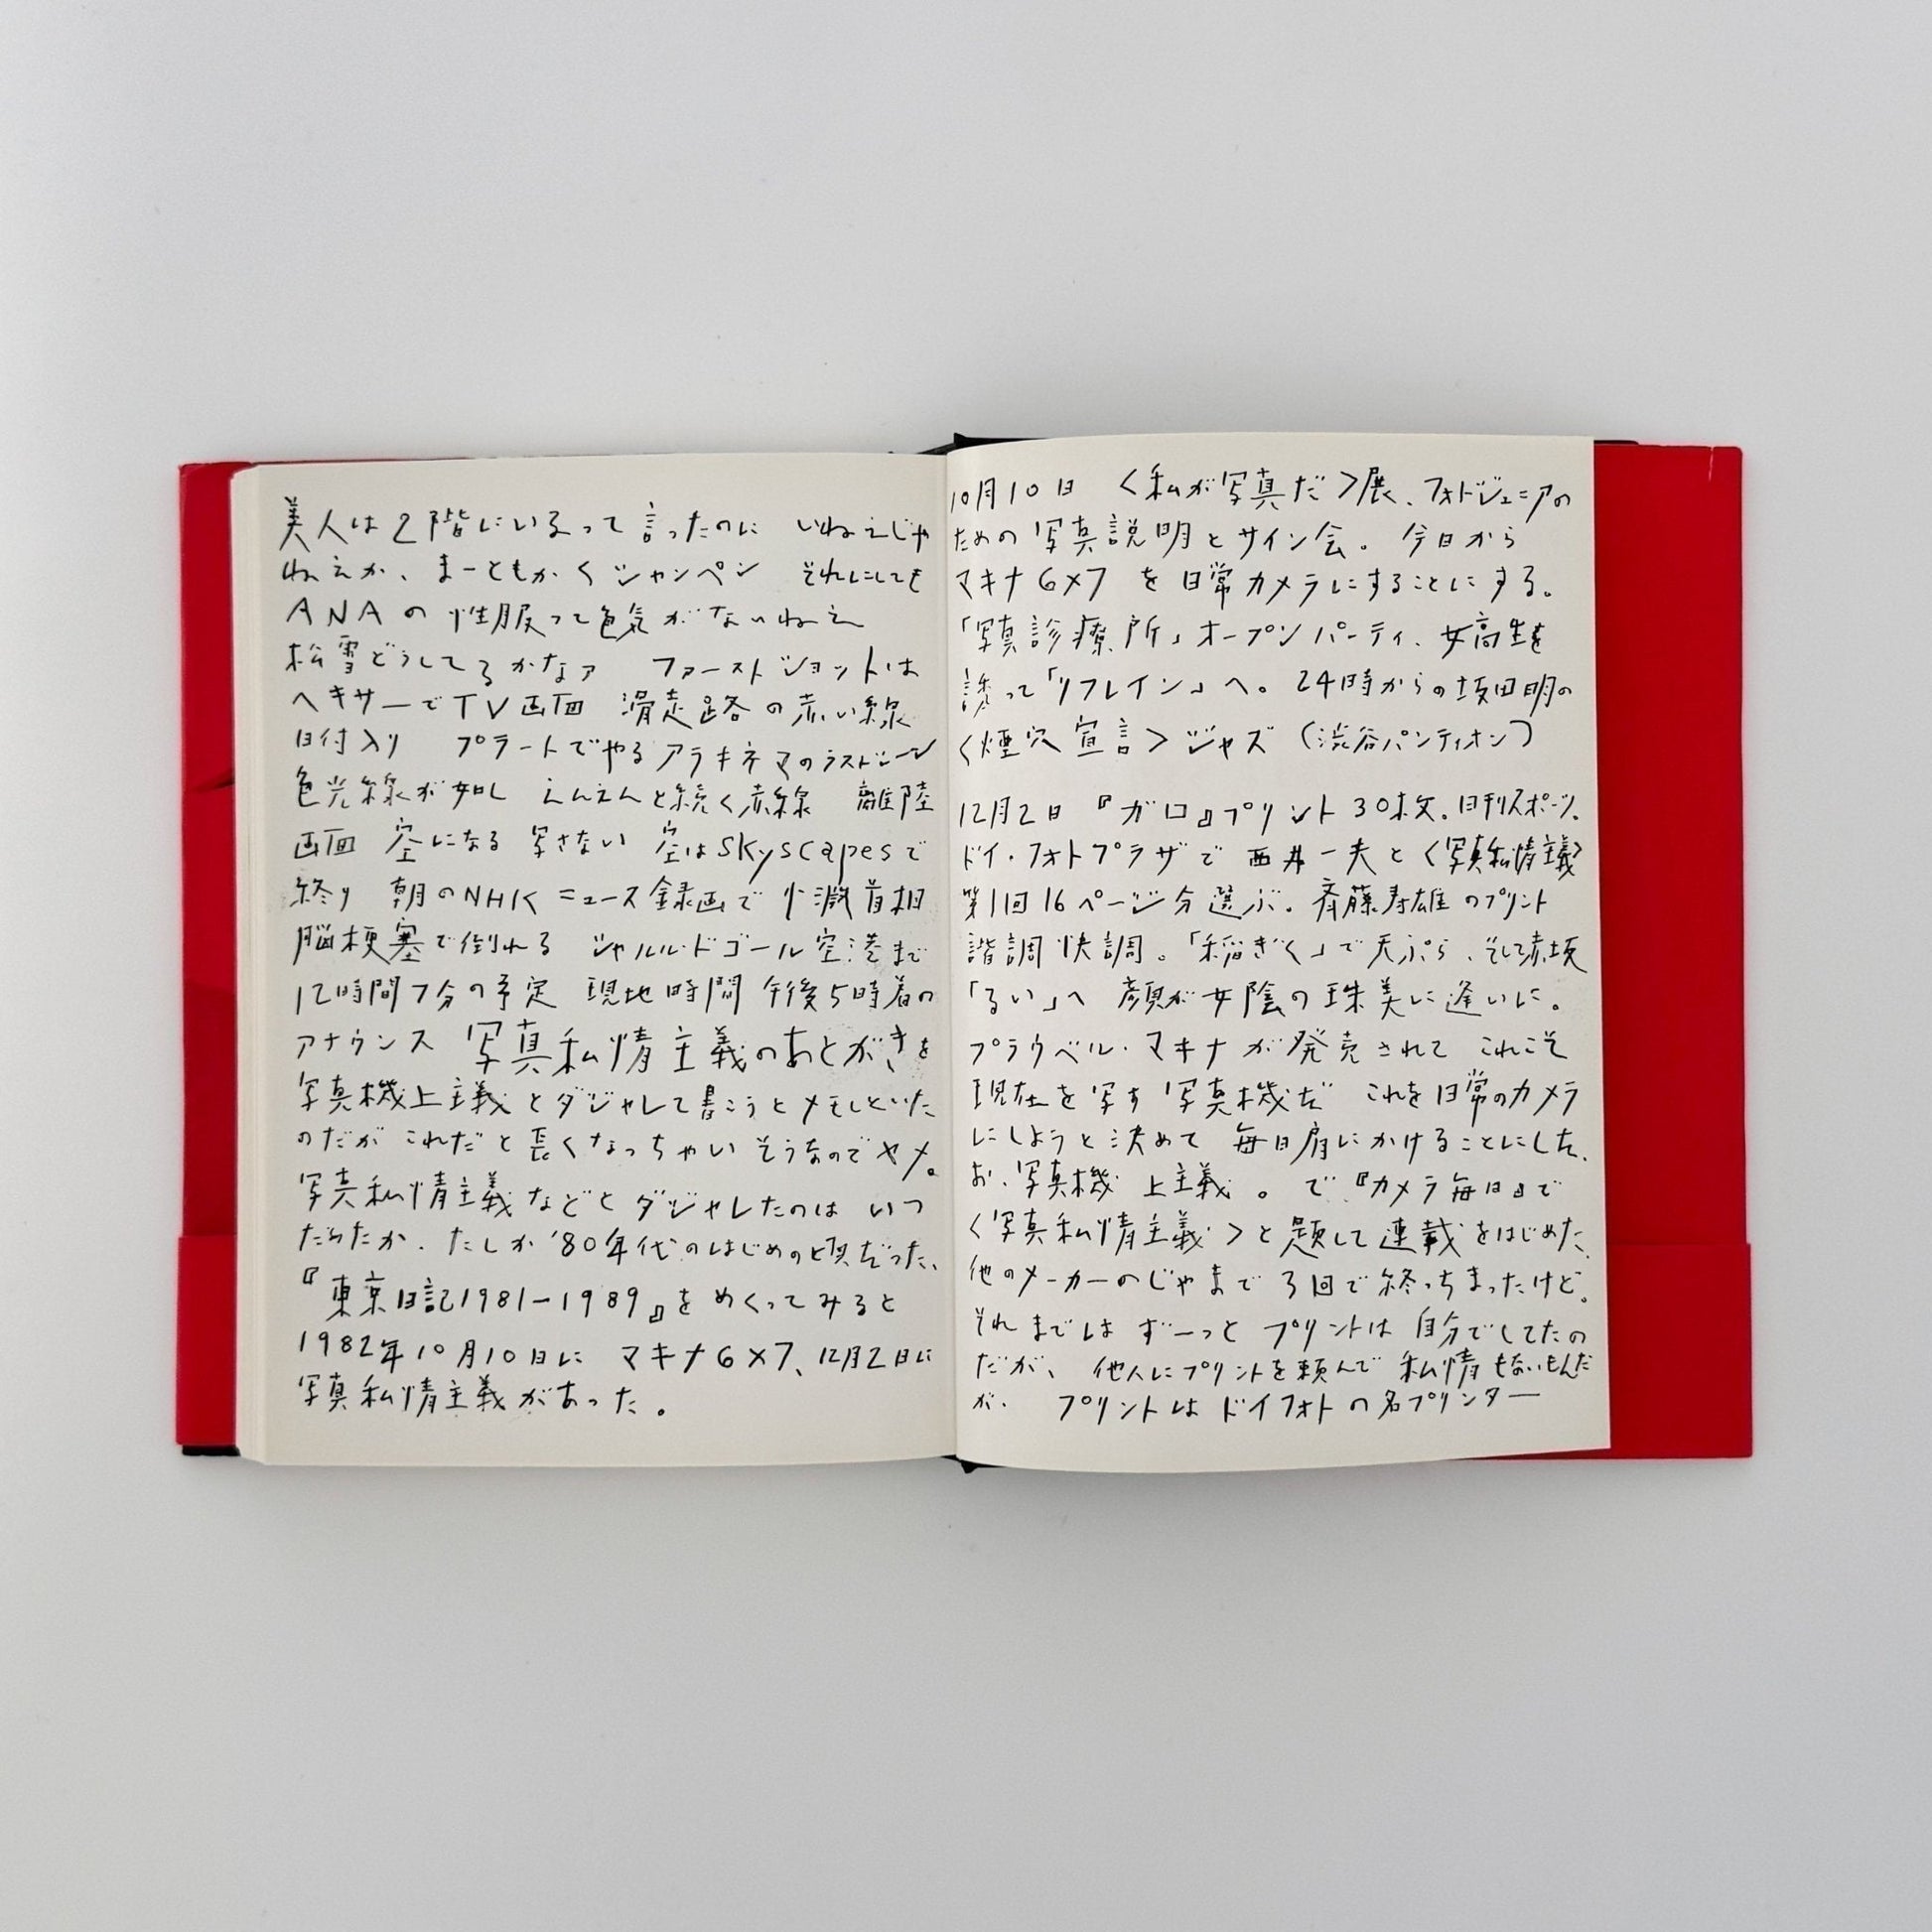 美人は2階にいるって言ったのに いねえじゃ
ねえか、まーともかくシャンペン それにしても
ANAの性服って色気がないねえ
松雪どうしてるかなァ ファーストショットは
ヘキサーでTV画面 滑走路の赤い線
日付入り プラートでやるアラキネマのラストシーン
色光線が如し えんえんと続く赤線 離陸
画面 空になる 写さない 空はskyscapesで
終り 朝のNHKニュース録画で 小渕首相
脳梗塞で倒れる シャルル・ドゴール空港まで
12時間7分の予定 現地時間 午後5時着の
アナウンス 写真私情主義のあとがきを
写真機上主義とダジャレて書こうとメモしといた
のだが これだと長くなっちゃいそうなのでヤメ。
写真私情主義などとダジャレたのは いつ
だったか、たしか'80年代のはじめの頃だった、
『東京日記1981-1989』をめくってみると
1982年10月10日に マキナ6×7、12月2日に
写真私情主義があった。
10月10日 〈私が写真だ〉展、フォトジェニアの
ための写真説明とサイン会。今日から
マキナ6×7 を日常カメラにすることにする。
「写真診療所」オープンパーティ、女高生を
誘って「リフレイン」へ。24時からの坂田明の
〈煙穴宣言〉ジャズ (渋谷パンティオン)
12月2日 『ガロ』プリント30枚。日刊スポーツ。
ドイ・フォトプラザで 西井一夫と〈写真私情主義〉
第1回16ページ分選ぶ。斉藤寿雄のプリント
諧調快調。「稲ぎく」で天ぷら、そして赤坂
「るい」へ 顔が女陰の珠美に逢いに。
プラウベル・マキナが発売されて これこそ
現在を写す写真機だ これを日常のカメラ
にしようと決めて 毎日肩にかけることにした、
お、写真機上主義。で『カメラ毎日』で
〈写真私情主義〉と題して連載をはじめた、
他のメーカーのじゃまで3回で終っちまったけど。
それまではずーっと プリントは自分でしてたの
だが、 他人にプリントを頼んで 私情もないもんだ
が、 プリントはドイフォトの名プリンター